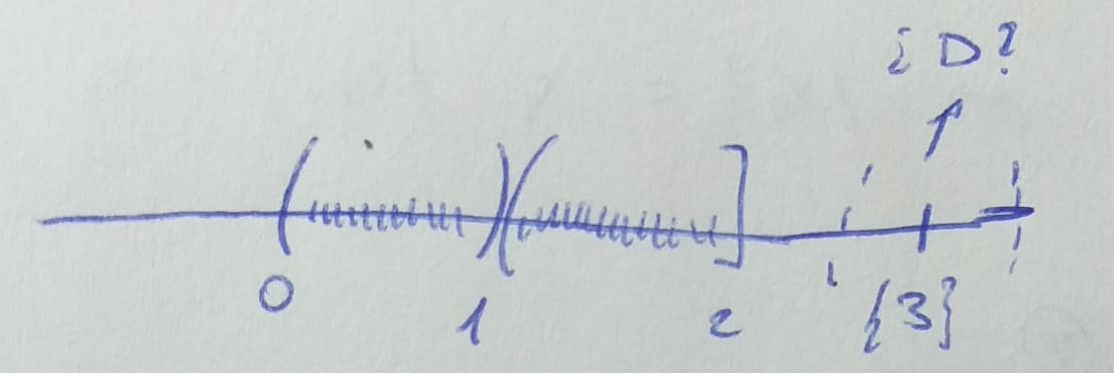 ¿D?
( )( ]
0 1 2 {3}